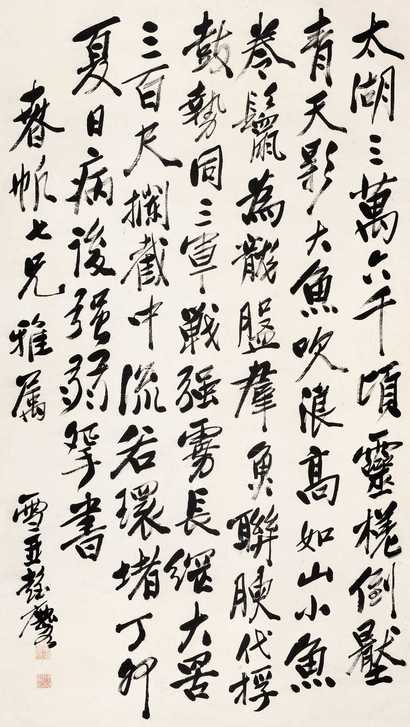 太湖三萬六千頃靈槎倒壓
青天影大魚吹浪高如山小魚
卷鬣為龍盤羣魚聯艘代桴
鼓勢同三軍戰强虜長網大罟
三百尺攔截中流若環堵丁卯
夏日病後强弱書
春帆七兄雅屬
雪亞